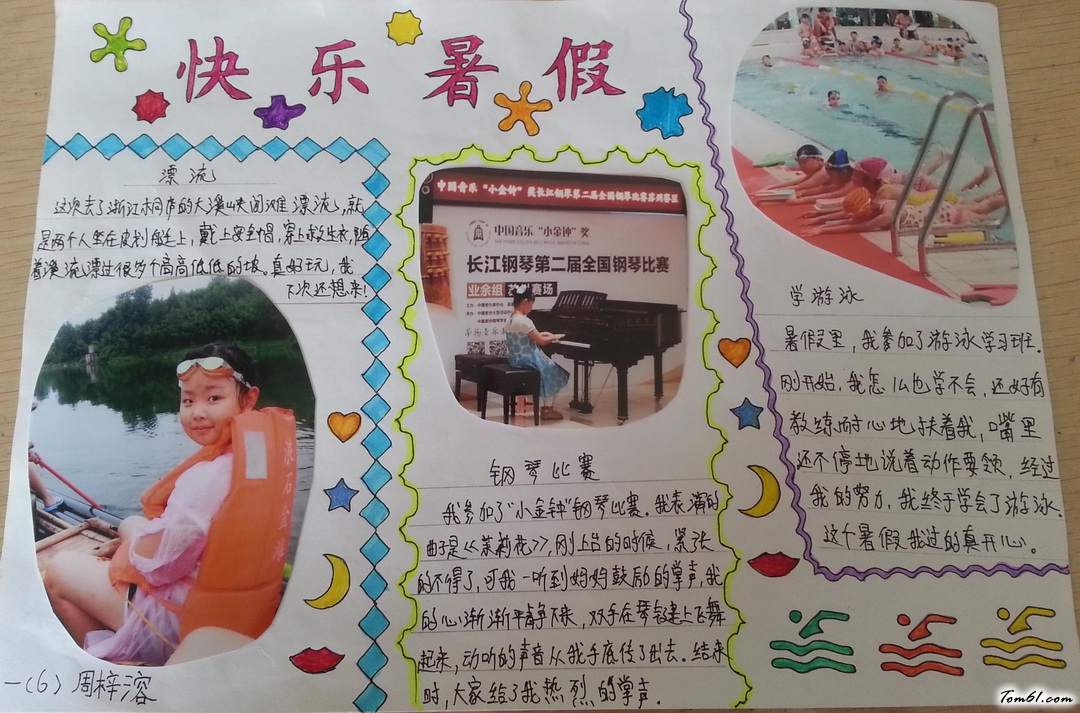 快乐暑假
漂流
这次去了浙江桐庐的大溪峡闯滩漂流,就
是两个人坐在皮划艇上,戴上安全帽,穿上救生衣,随
着溪流漂过很多个高高低低的坡。真好玩,我
下次还想来!
一(6)周梓溶
中国音乐“小金钟”奖长江钢琴第二届全国钢琴比赛
中国音乐“小金钟”奖
长江钢琴第二届全国钢琴比赛
业余组
赛场
钢琴比赛
我参加了“小金钟”钢琴比赛。我表演的
曲子是《茉莉花》,刚上台的时候,紧张
的不得了,可我一听到妈妈鼓励的掌声,我
的心渐渐平静下来,双手在琴键上飞舞
起来,动听的声音从我手底传了出去。结束
时,大家给了我热烈的掌声。
学游泳
暑假里,我参加了游泳学习班。
刚开始,我怎么也学不会,还好有
教练耐心地扶着我,嘴里
还不停地说着动作要领,经过
我的努力,我终于学会了游泳。
这个暑假我过的真开心。
Tom61.com